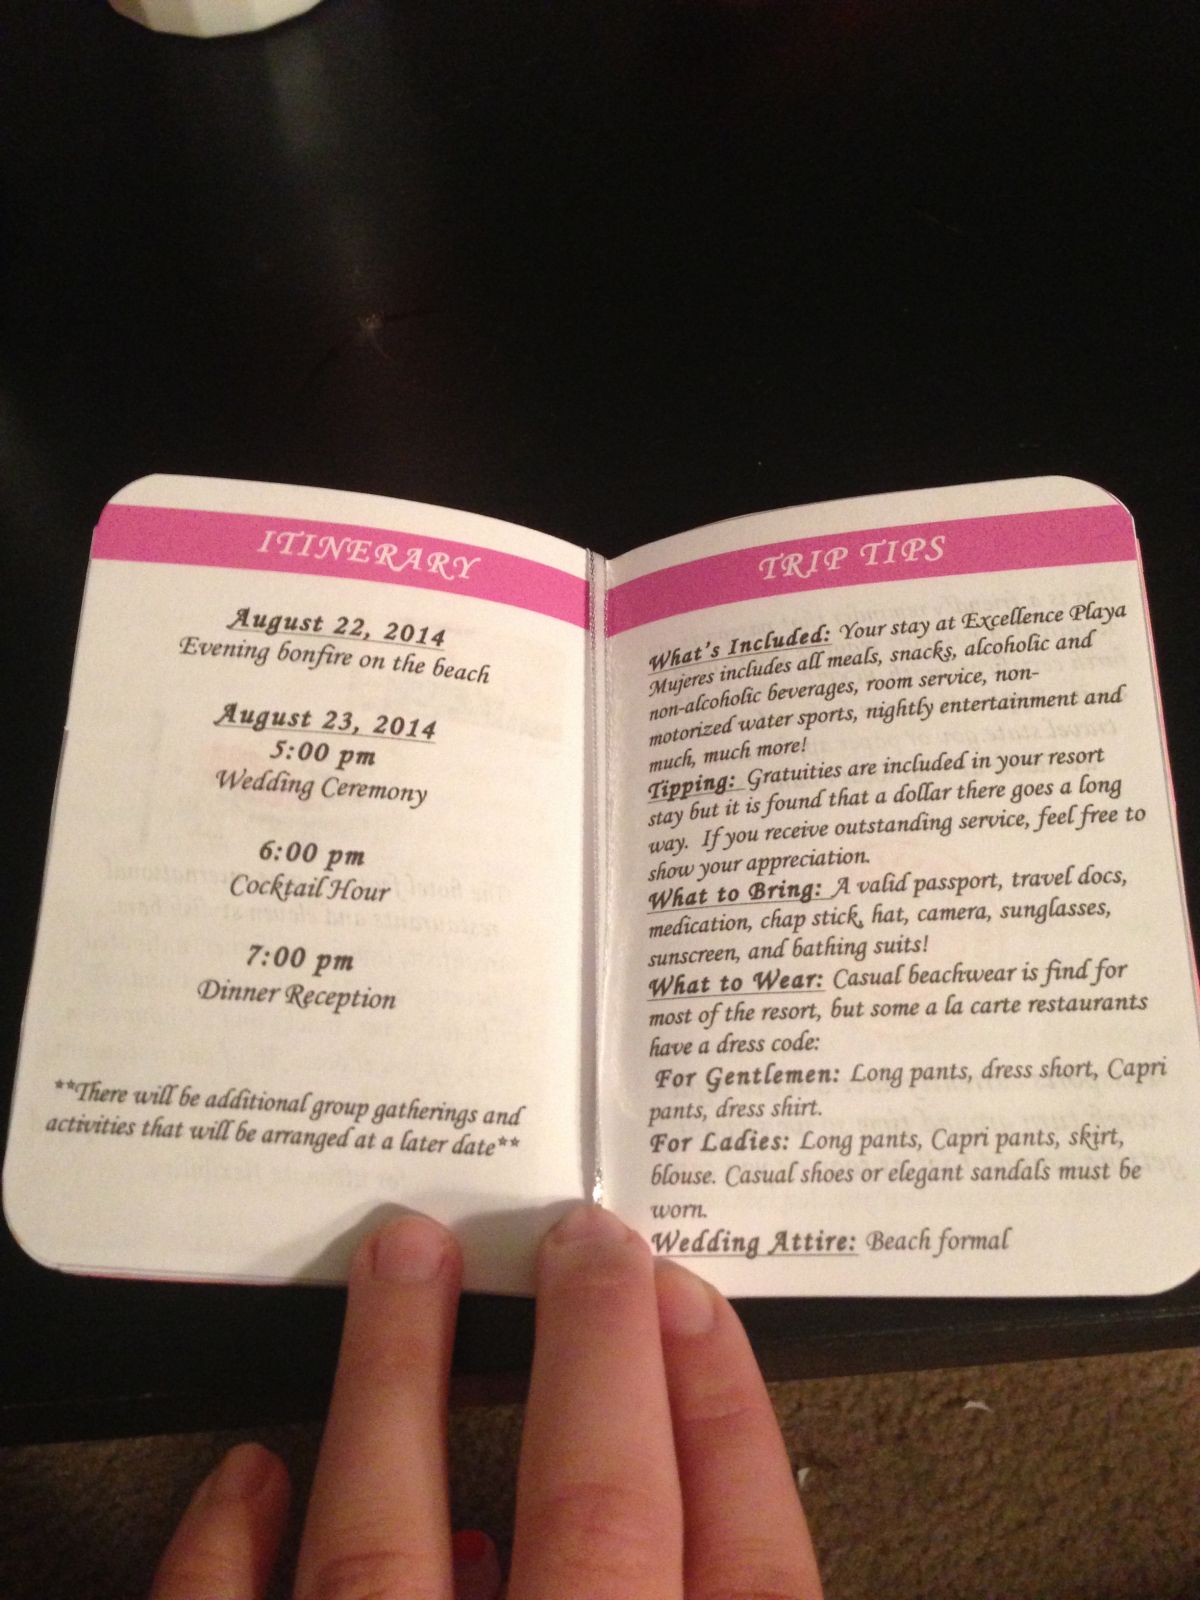 ITINERARY
August 22, 2014
Evening bonfire on the beach
August 23, 2014
5:00 pm
Wedding Ceremony
6:00 pm
Cocktail Hour
7:00 pm
Dinner Reception
**There will be additional group gatherings and
activities that will be arranged at a later date**
TRIP TIPS
What's Included: Your stay at Excellence Playa
Mujeres includes all meals, snacks, alcoholic and
non-alcoholic beverages, room service, non-
motorized water sports, nightly entertainment and
much, much more!
Tipping: Gratuities are included in your resort
stay but it is found that a dollar there goes a long
way. If you receive outstanding service, feel free to
show your appreciation.
What to Bring: A valid passport, travel docs,
medication, chap stick, hat, camera, sunglasses,
sunscreen, and bathing suits!
What to Wear: Casual beachwear is find for
most of the resort, but some a la carte restaurants
have a dress code:
For Gentlemen: Long pants, dress short, Capri
pants, dress shirt.
For Ladies: Long pants, Capri pants, skirt,
blouse. Casual shoes or elegant sandals must be
worn.
Wedding Attire: Beach formal